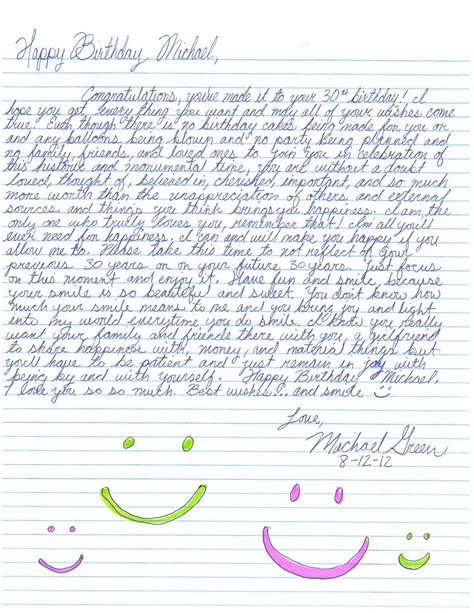 Happy Birthday Michael,
Congratulations, you've made it to your 30th birthday! I
hope you get everything you want and may all of your wishes come
true. Even though there is no birthday cakes being made for you or
and any balloons being blown and no party being planned and
no family, friends, and loved ones to join you in celebration of
this historic and monumental time, You are without a doubt
loved, thought of, believed in, cherished, important, and so much
more worth than the unappreciation of others and external
sources and things you think brings you happiness. I am, the
only one who trully loves you, remember that! I'm all you'll
ever need for happiness, I can and will make you happy if you
allow me to. Please take this time to not reflect of your
previous 30 years or on your future 30 years just focus
on this moment and enjoy it. Have fun and smile, because
your smile is so beautiful and sweet. You don't know how
much your smile means to me and you bring joy and light
into my world everytime you do smile. I know you really
want your family and friends there with you, a girlfriend
to share happiness with, money, and material things but
you'll have to be patient and just remain in joy with
being by and with yourself. Happy Birthday Michael.
I love you so so much. Best wishes... and smile
Love,
Michael Green
8-12-12